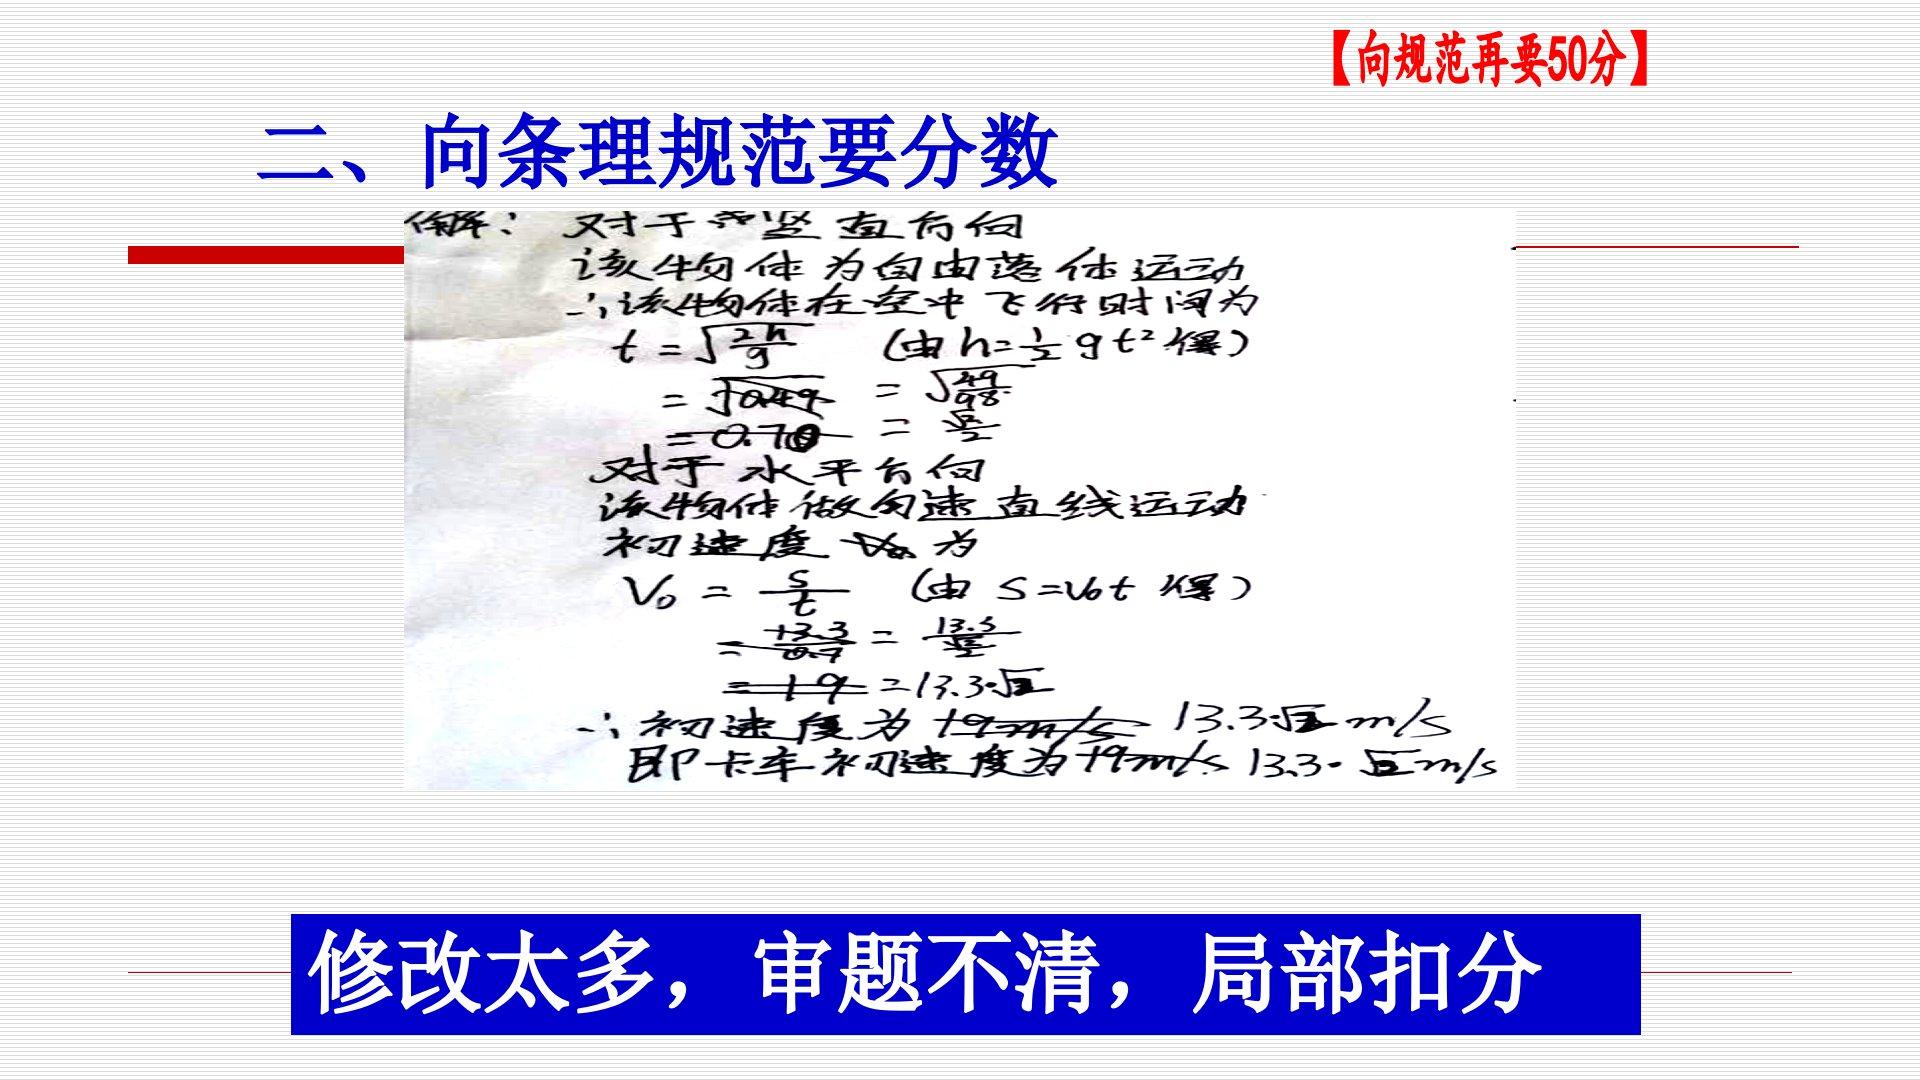 【向规范再要50分】
二、向条理规范要分数
解: 对于竖直方向
该物体为自由落体运动
∴该物体在空中飞行时间为
t = √(2h/g) (由h=1/2 gt²得)
= √0.49 = √(49/98)
= 0.70 = √2/2
对于水平方向
该物体做匀速直线运动
初速度 V₀ 为
V₀ = s/t (由 S=V₀t 得)
= 13.3/0.7 = 13.3/(√2/2)
= 19 = 13.3·√2
∴初速度为 19m/s 13.3·√2 m/s
即卡车初速度为 19m/s 13.3·√2 m/s
修改太多，审题不清，局部扣分